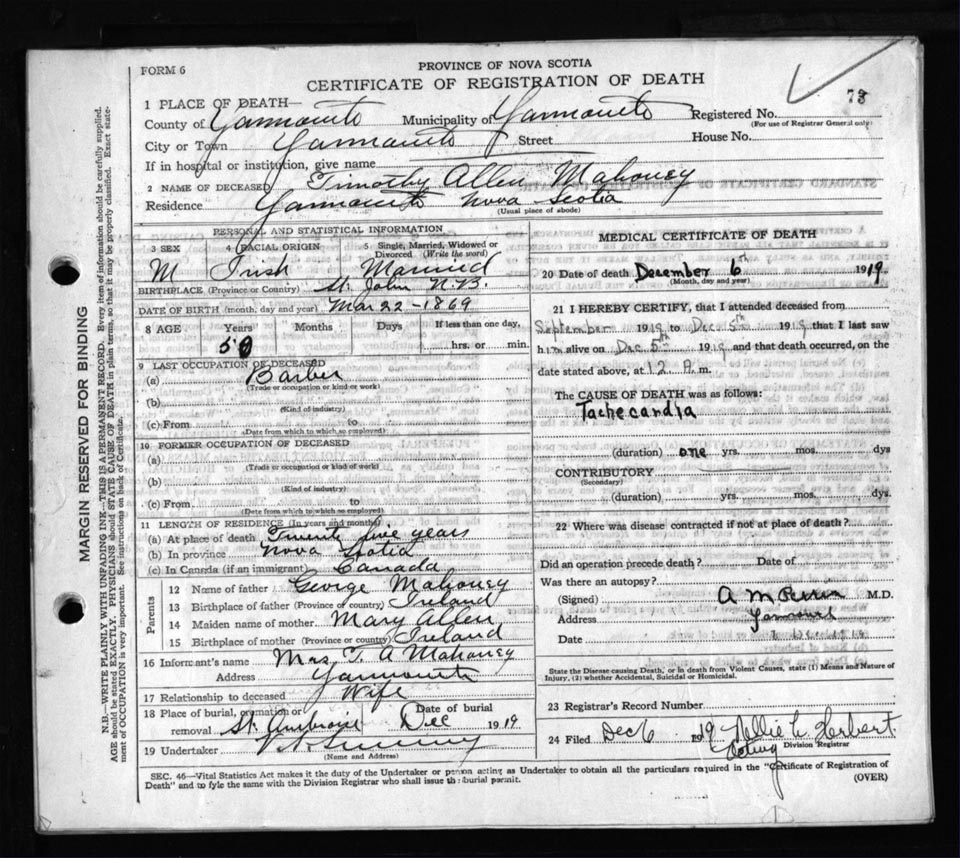 PROVINCE OF NOVA SCOTIA
FORM 6
CERTIFICATE OF REGISTRATION OF DEATH
73
1 PLACE OF DEATH—
County of Yarmouth Municipality of Yarmouth Registered No.
(For use of Registrar General only)
City or Town Yarmouth Street House No.
If in hospital or institution, give name
2 NAME OF DECEASED Timothy Allen Mahoney
Residence Yarmouth Nova Scotia
(Usual place of abode)
PERSONAL AND STATISTICAL INFORMATION
3 SEX 4 RACIAL ORIGIN 5 Single, Married, Widowed or Divorced (Write the word)
M Irish Married
BIRTHPLACE (Province or Country) St. John N.B.
DATE OF BIRTH (month, day and year) Mar 22 - 1869
8 AGE Years Months Days If less than one day,
50 hrs. or min.
9 LAST OCCUPATION OF DECEASED
(a) Barber
(Trade or occupation or kind or work)
(b)
(Kind of industry)
(c) From to
(Date from which to which so employed)
10 FORMER OCCUPATION OF DECEASED
(a)
(Trade or occupation or kind of work)
(b)
(Kind of industry)
(c) From to
(Date from which to which so employed)
11 LENGTH OF RESIDENCE (In years and months)
(a) At place of death Twenty five years
(b) In province Nova Scotia
(c) In Canada (if an immigrant) Canada
Parents
12 Name of father George Mahoney
13 Birthplace of father (Province or country) Ireland
14 Maiden name of mother Mary Allen
15 Birthplace of mother (Province or country) Ireland
16 Informant's name Mrs. T. A Mahoney
Address Yarmouth
17 Relationship to deceased Wife
18 Place of burial, cremation or removal St. Ambroise Date of burial Dec 1919
19 Undertaker
(Name and Address)
MEDICAL CERTIFICATE OF DEATH
20 Date of death December 6th 1919.
(Month, day and year)
21 I HEREBY CERTIFY, that I attended deceased from
September 1919 to Dec 5th 1919 that I last saw
him alive on Dec 5th 1919 and that death occurred, on the
date stated above, at 12 A.m.
The CAUSE OF DEATH was as follows:
Tachecardia
(duration) one yrs. mos. dys
CONTRIBUTORY
(Secondary)
(duration) yrs. mos. dys.
22 Where was disease contracted if not at place of death?
Did an operation precede death? Date of
Was there an autopsy?
(Signed) A M Perrin M.D.
Address Yarmouth
Date
State the Disease causing Death, or in death from Violent Causes, state (1) Means and Nature of
Injury, (2) whether Accidental, Suicidal or Homicidal.
23 Registrar's Record Number
24 Filed Dec 6 1919 Nellie C Herbert.
Acting Division Registrar
SEC. 46—Vital Statistics Act makes it the duty of the Undertaker or person acting as Undertaker to obtain all the particulars required in the "Certificate of Registration of
Death" and to fyle the same with the Division Registrar who shall issue the burial permit.
(OVER)
MARGIN RESERVED FOR BINDING
N.B.—WRITE PLAINLY WITH UNFADING INK—THIS IS A PERMANENT RECORD. Every item of information should be carefully supplied.
AGE should be stated EXACTLY. PHYSICIANS should STATE CAUSE OF DEATH in plain terms, so that it may be properly classified. Exact state-
ment of OCCUPATION is very important. See instructions on back of Certificate.